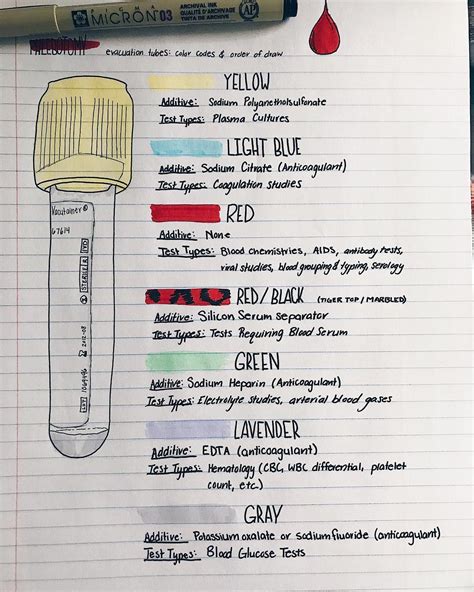 SAKURA PIGMA
MICRON® 03
ARCHIVAL INK
AP
PHLEBOTOMY evacuation tubes: color codes & order of draw
YELLOW
Additive: Sodium Polyanetholsulfonate
Test Types: Plasma Cultures
LIGHT BLUE
Additive: Sodium Citrate (Anticoagulant)
Test Types: Coagulation studies
RED
Additive: None
Test Types: Blood chemistries, AIDS, antibody tests,
viral studies, blood grouping & typing, serology
RED/BLACK (TIGER TOP / MARBLED)
Additive: Silicon Serum separator
Test Types: Tests Requiring Blood Serum
GREEN
Additive: Sodium Heparin (Anticoagulant)
Test Types: Electrolyte studies, arterial blood gases
LAVENDER
Additive: EDTA (anticoagulant)
Test Types: Hematology (CBC, WBC differential, platelet
count, etc.)
GRAY
Additive: Potassium oxalate or sodium fluoride (anticoagulant)
Test Types: Blood Glucose Tests
Vacutainer®
67614
STERILE R IVD
2012-08
LOT